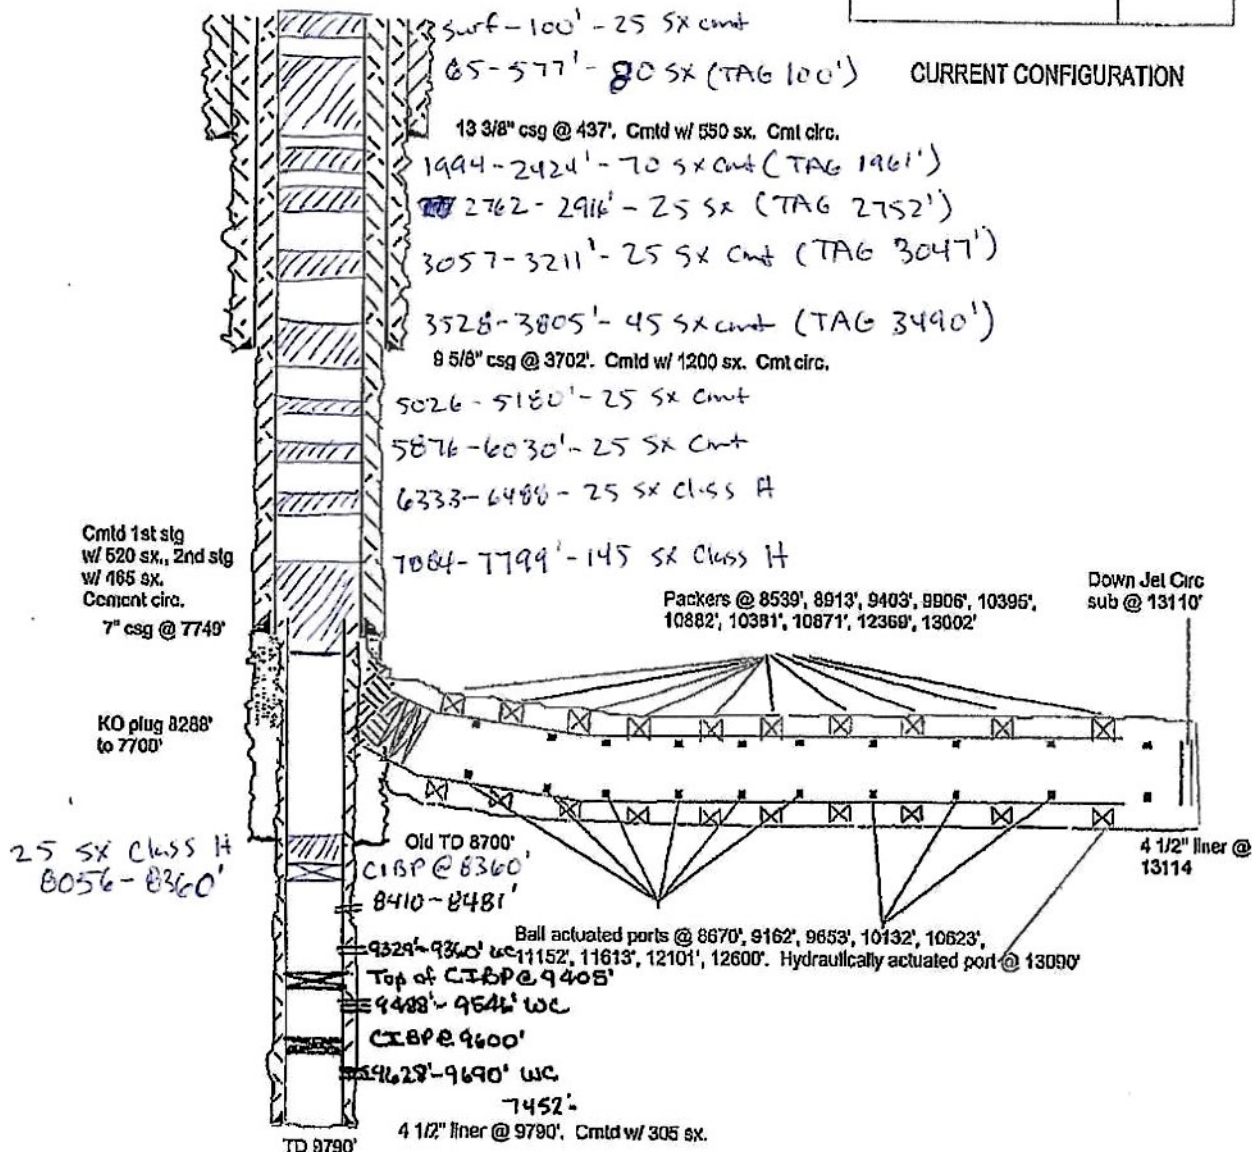 Surf-100' - 25 sx cmt
65-577' - 80 sx (TAG 100')
CURRENT CONFIGURATION
13 3/8" csg @ 437'. Cmtd w/ 550 sx. Cmt circ.
1994-2424' - 70 sx cmt (TAG 1961')
2762-2916' - 25 sx (TAG 2752')
3057-3211' - 25 sx cmt (TAG 3047')
3528-3805' - 45 sx cmt (TAG 3490')
9 5/8" csg @ 3702'. Cmtd w/ 1200 sx. Cmt circ.
5026-5180' - 25 sx cmt
5876-6030' - 25 sx cmt
6333-6488 - 25 sx class H
Cmtd 1st stg
w/ 520 sx., 2nd stg
w/ 465 sx.
Cement circ.
7" csg @ 7749'
7084-7799' - 145 sx Class H
Packers @ 8539', 8913', 9403', 9906', 10395',
10882', 10381', 10871', 12369', 13002'
Down Jet Circ
sub @ 13110'
KO plug 8288'
to 7700'
25 sx Class H
8056-8360'
Old TD 8700'
CIBP @ 8360'
8410-8481'
4 1/2" liner @
13114
Ball actuated ports @ 8670', 9162', 9653', 10132', 10623',
11152', 11613', 12101', 12600'. Hydraulically actuated port @ 13090'
9329'-9360' WC
Top of CIBP @ 9405'
9488'-9546' WC
CIBP @ 9600'
9628'-9690' WC
7452'-
4 1/2" liner @ 9790'. Cmtd w/ 305 sx.
TD 9790'